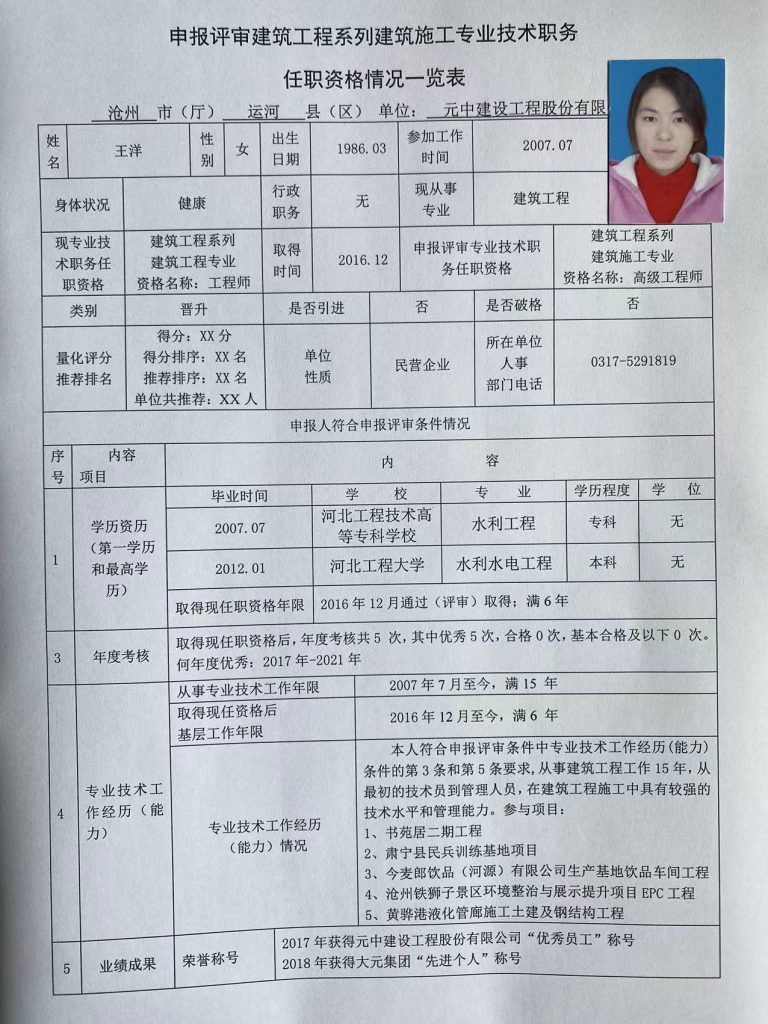 申报评审建筑工程系列建筑施工专业技术职务
任职资格情况一览表
沧州 市（厅） 运河 县（区） 单位： 元中建设工程股份有限
姓名 王洋 性别 女 出生日期 1986.03 参加工作时间 2007.07
身体状况 健康 行政职务 无 现从事专业 建筑工程
现专业技术职务任职资格 建筑工程系列 建筑工程专业 资格名称：工程师 取得时间 2016.12 申报评审专业技术职务任职资格 建筑工程系列 建筑施工专业 资格名称：高级工程师
类别 晋升 是否引进 否 是否破格 否
量化评分推荐排名 得分：XX 分 得分排序：XX 名 推荐排序：XX 名 单位共推荐：XX 人 单位性质 民营企业 所在单位人事部门电话 0317-5291819
申报人符合申报评审条件情况
序号 内容 项目 内 容
1 学历资历（第一学历和最高学历） 毕业时间 学 校 专 业 学历程度 学 位
2007.07 河北工程技术高等专科学校 水利工程 专科 无
2012.01 河北工程大学 水利水电工程 本科 无
取得现任职资格年限 2016 年 12 月通过（评审）取得；满 6 年
3 年度考核 取得现任职资格后，年度考核共 5 次，其中优秀 5 次，合格 0 次，基本合格及以下 0 次。
何年度优秀：2017 年-2021 年
4 专业技术工作经历（能力） 从事专业技术工作年限 2007 年 7 月至今，满 15 年
取得现任资格后基层工作年限 2016 年 12 月至今，满 6 年
专业技术工作经历（能力）情况
本人符合申报评审条件中专业技术工作经历(能力)
条件的第 3 条和第 5 条要求，从事建筑工程工作 15 年，从
最初的技术员到管理人员，在建筑工程施工中具有较强的
技术水平和管理能力。参与项目：
1、书苑居二期工程
2、肃宁县民兵训练基地项目
3、今麦郎饮品（河源）有限公司生产基地饮品车间工程
4、沧州铁狮子景区环境整治与展示提升项目 EPC 工程
5、黄骅港液化管廊施工土建及钢结构工程
5 业绩成果 荣誉称号 2017 年获得元中建设工程股份有限公司“优秀员工”称号
2018 年获得大元集团“先进个人”称号